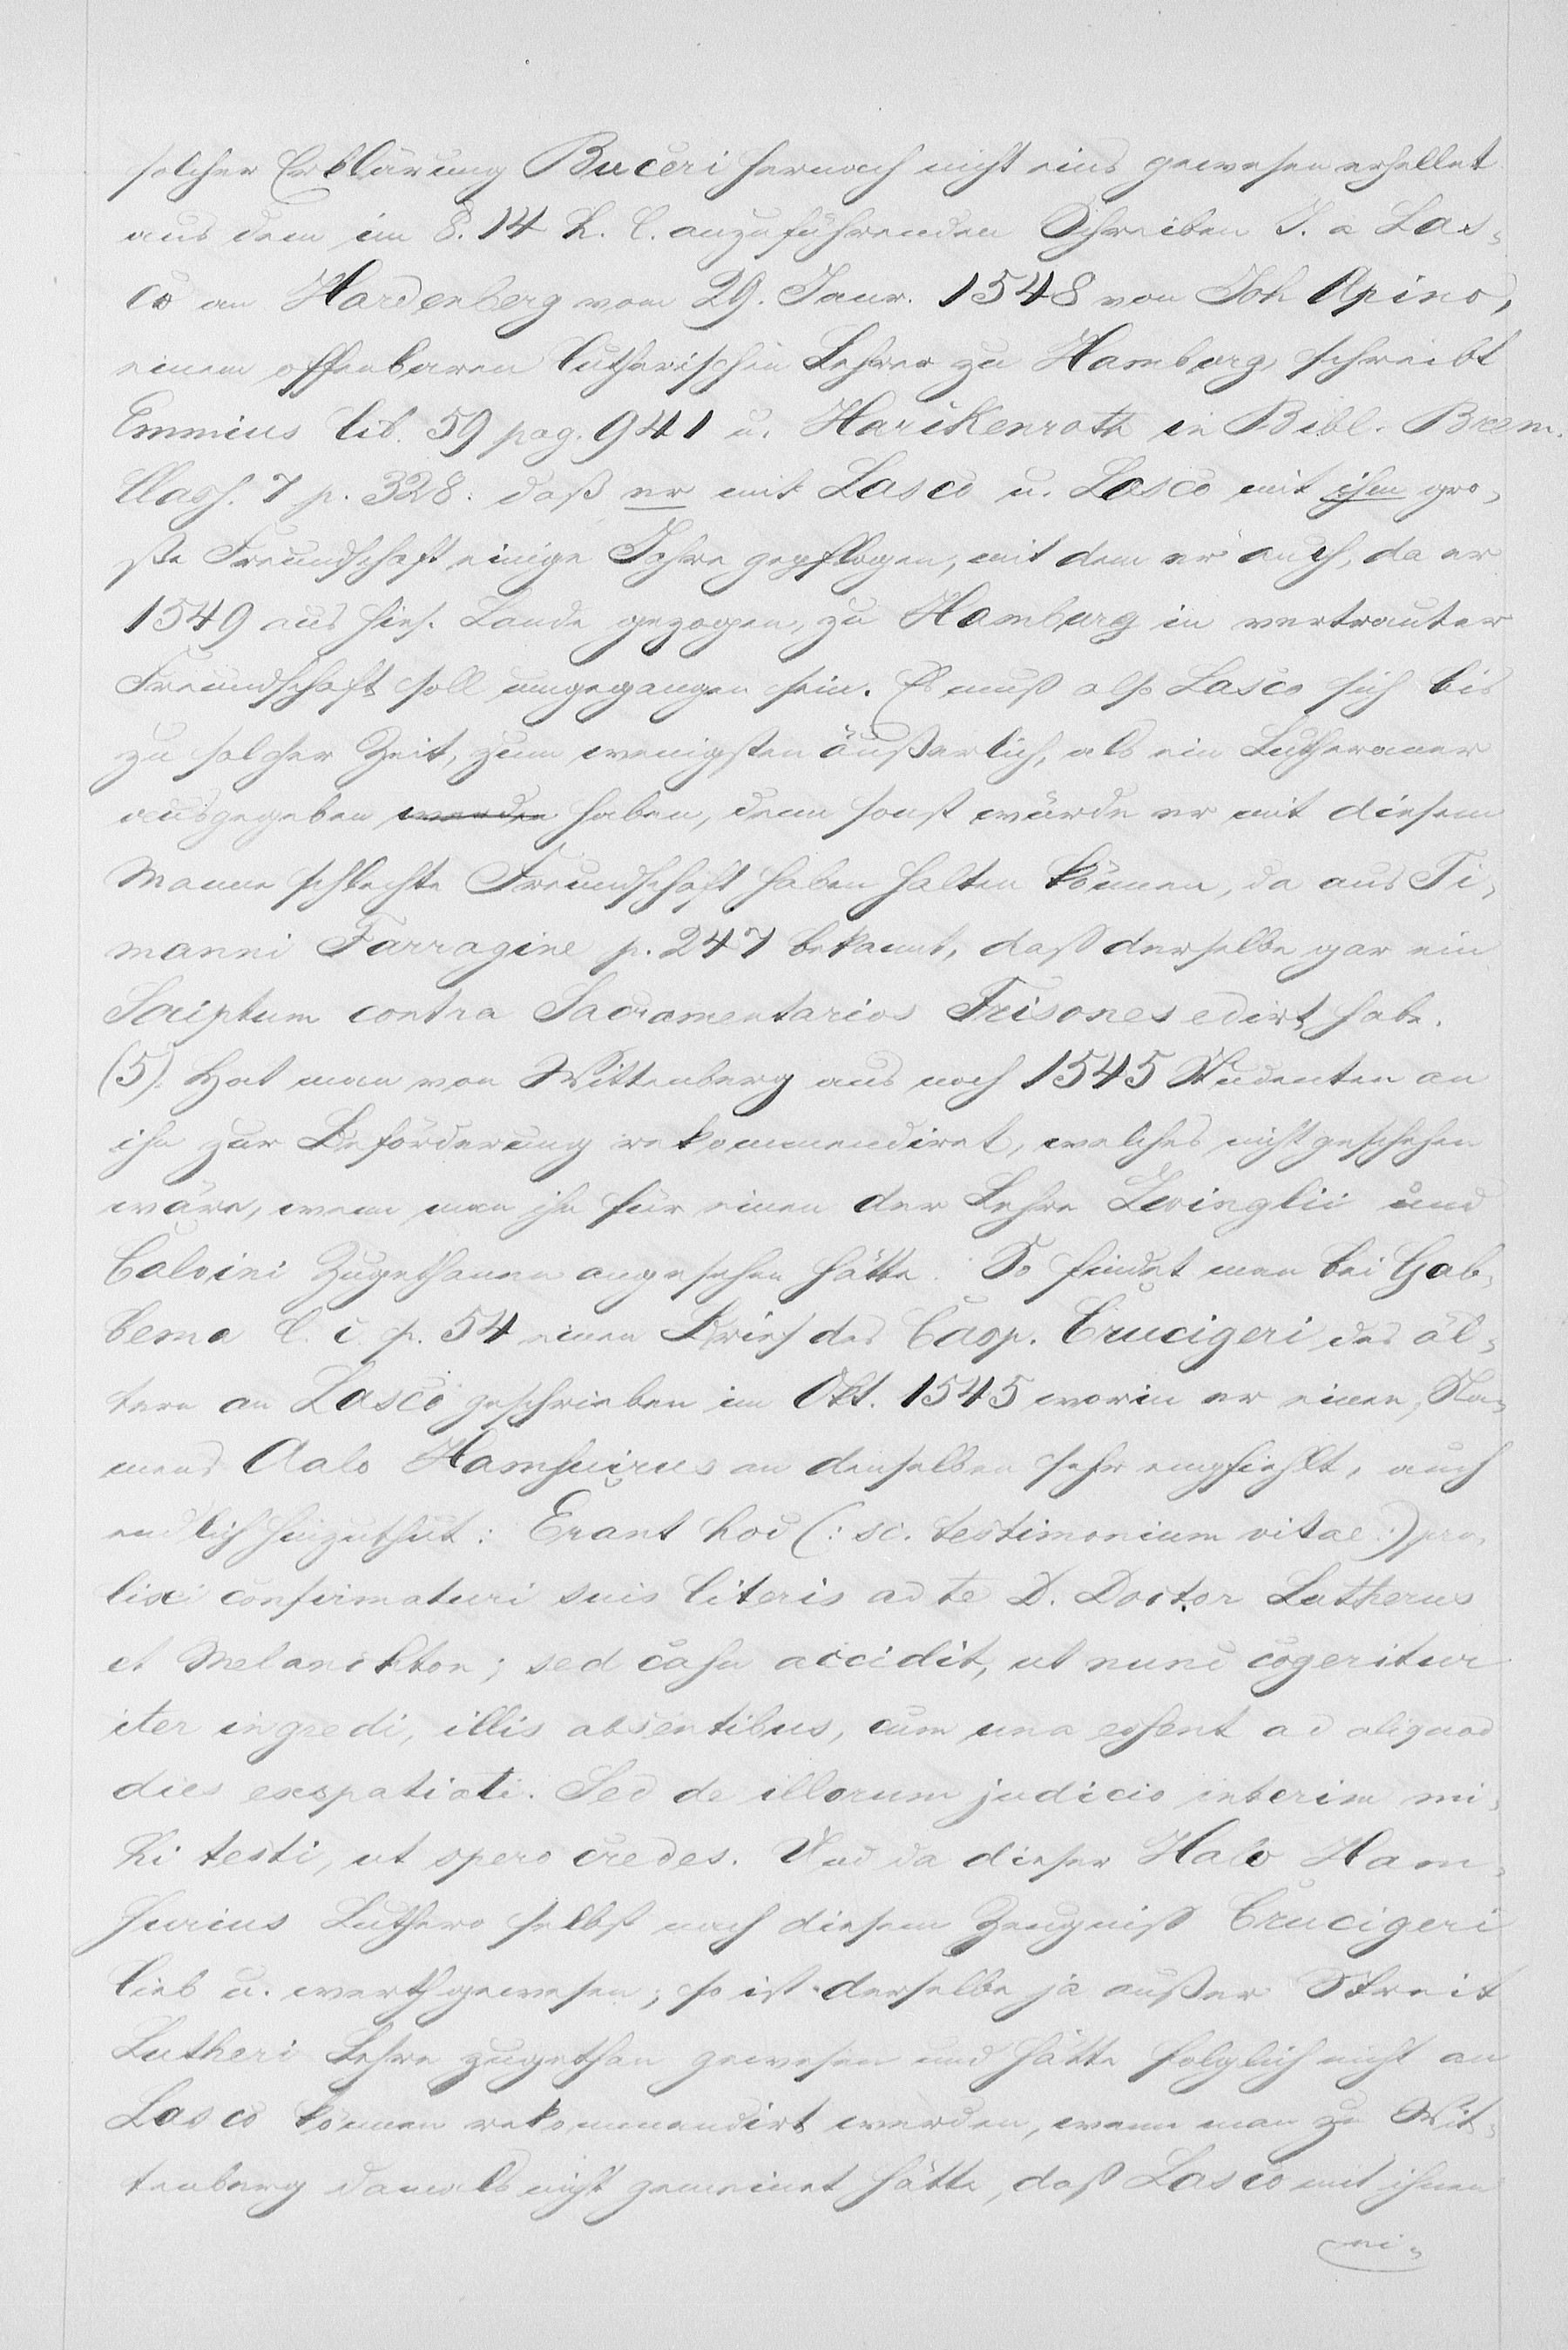 solcher Erklärung Buceri hernach nicht eins gewesen erhellet
aus dem im §. 14 h. l. anzuführenden Schreiben J. a Las-
co an Hardenberg vom 29. Janr. 1548 von Joh Apino,
einem offenbaren lutherischen Lehrer zu Hamburg, schreibt
Emmius lib. 59 pag. 941 u. Harikenroth in Bibl. Brem.
Class. 7 p. 328: daß er mit Lasco u. Lasco mit ihm gro-
ße Freundschaft einige Jahre gepflogen, mit dem er auch, da er
1549 aus hies. Lande gezogen, zu Hamburg in vertrauter
Freundschaft soll umgegangen sein. Es muß also Lasco sich bis
zu solcher Zeit, zum wenigsten äußerlich, als ein Lutheraner
ausgegeben werden haben, denn sonst würde er mit diesem
Manne schlechte Freundschaft haben halten können, da aus Ti-
manni Farragine p. 247 bekannt, daß derselbe gar ein
Scriptum contra Sacramentarios Frisones edirt habe.
(5). Hat man von Wittenberg aus noch 1545 Studenten an
ihn zur Beförderung rekommendiret, welches nicht geschehen
wäre, wenn man ihn für einen der Lehre Zwinglii und
Calvini Zugethanen angesehen hätte. So findet man bei Gab-
bema l. c. p. 54 einen Brief des Casp. Crucigeri des äl-
tern an Lasco geschrieben im Okt. 1545 worin er einen, Na-
mens Aalo Hamhuirus an denselben sehr empfiehlt, auch
endlich hinzuthut: Erant hoc (: sc. testimonium vitae :) pro-
lixi confirmaturi suis literis ad te D. Doctor Lutherus
et Melanchton; sed casu accidit, ut nunc cogeritur
iter ingredi, illis absentibus, cum una essent ad aliquod
dies exspatiati. Sed de illorum judicio interim mi-
hi testi, ut spero credes. Und da dieser Halo Ham-
hurius Luthero selbst nach diesem Zeugniß Crucigeri
lieb u. werth gewesen; so ist derselbe ja außer Streit
Lutheri Lehre zugethan gewesen und hätte folglich nicht an
Lasco können rekommendirt werden, wenn man zu Wit-
tenberg damals nicht gemeinet hätte, daß Lasco mit ihnen
ei-